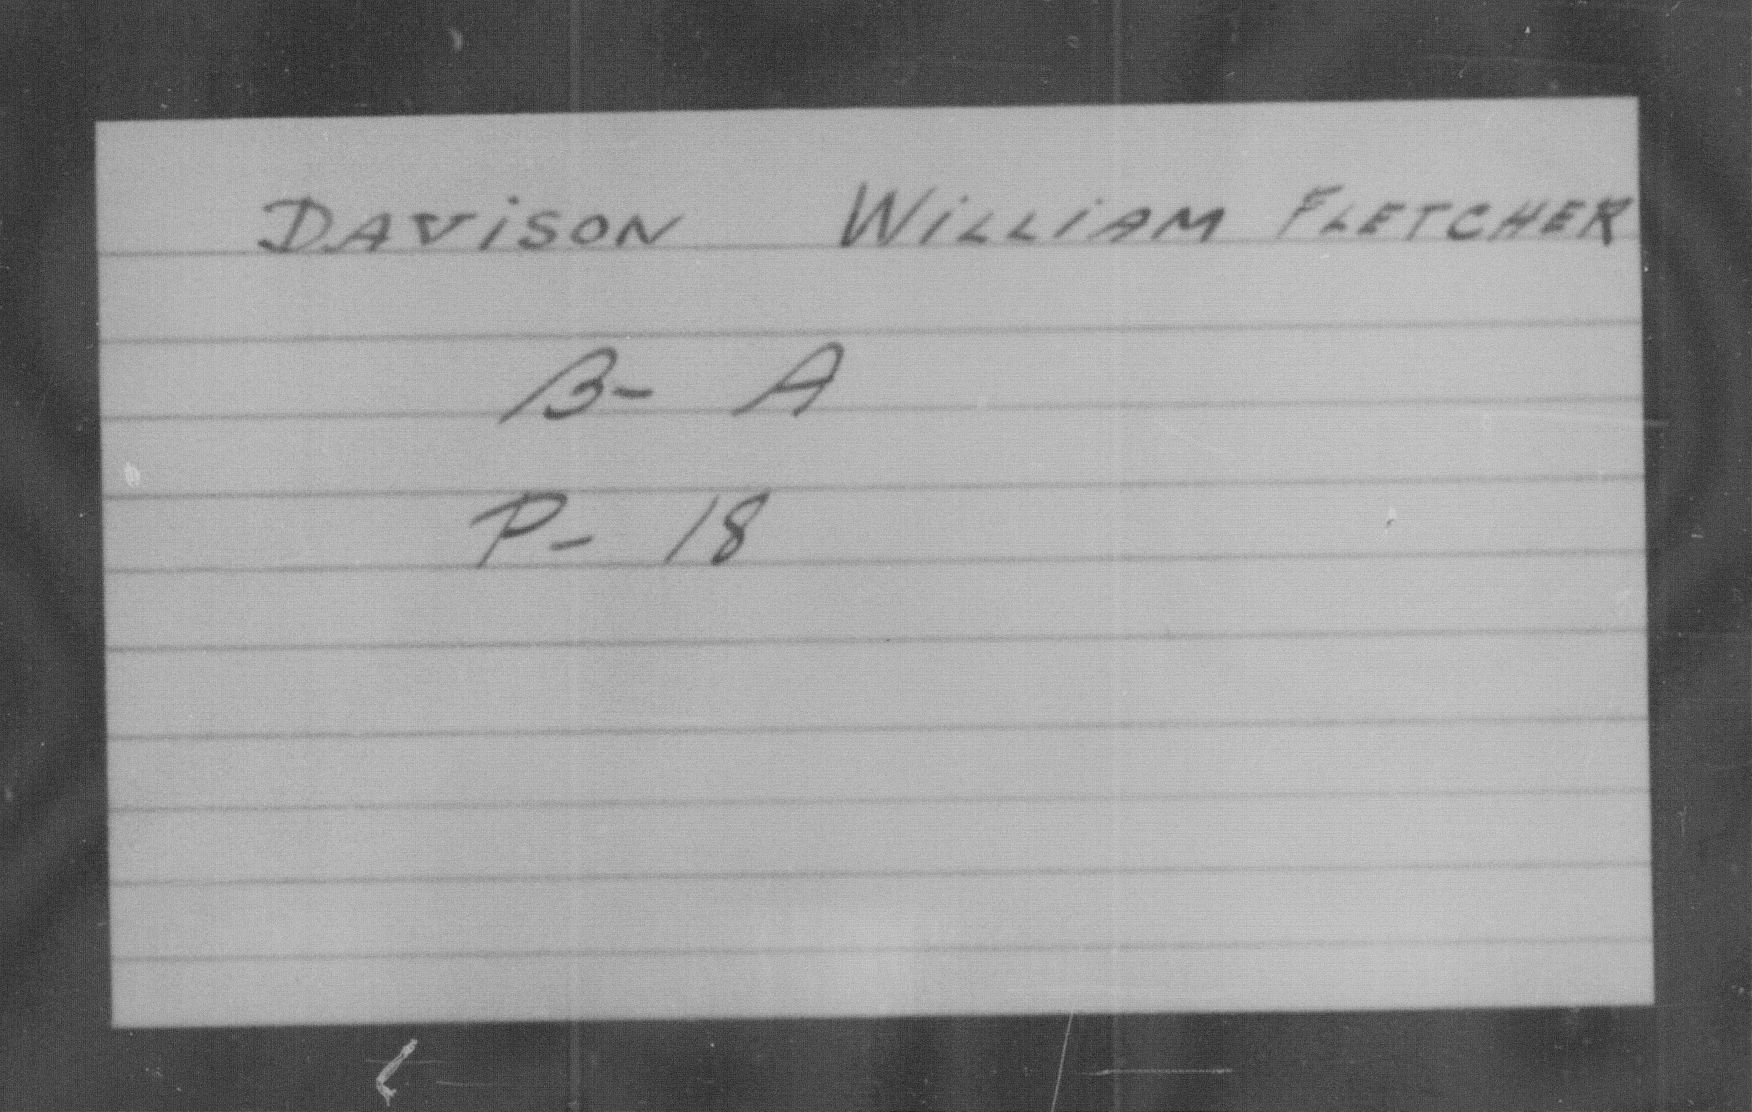 DAVISON WILLIAM FLETCHER
B- A
P- 18